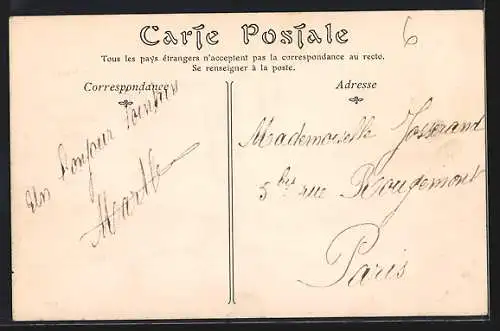 Carte Postale
6
Tous les pays étrangers n'acceptent pas la correspondance au recto.
Se renseigner à la poste.
Correspondance
Adresse
Un bonjour
Marthe
Mademoiselle Josserand
5 bis rue Rougemont
Paris